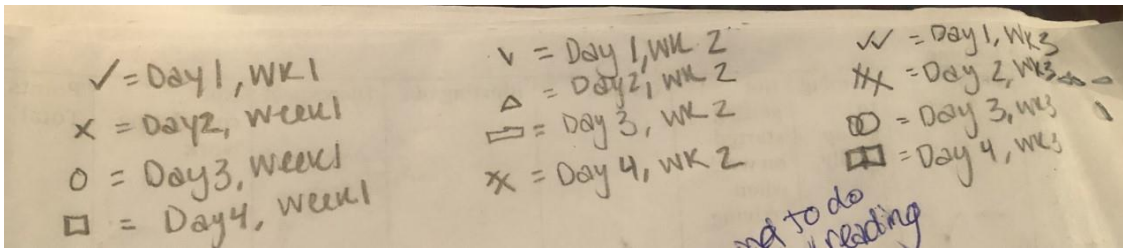 ✓ = Day 1, WK 1
x = Day2, week1
o = Day3, week1
□ = Day4, week1
v = Day 1, WK 2
△ = Day2, WK 2
▭ = Day 3, WK 2
= Day 4, WK 2
✓✓ = Day 1, WK3
= Day 2, WK3
= Day 3, WK3
= Day 4, WK3
to do
reading